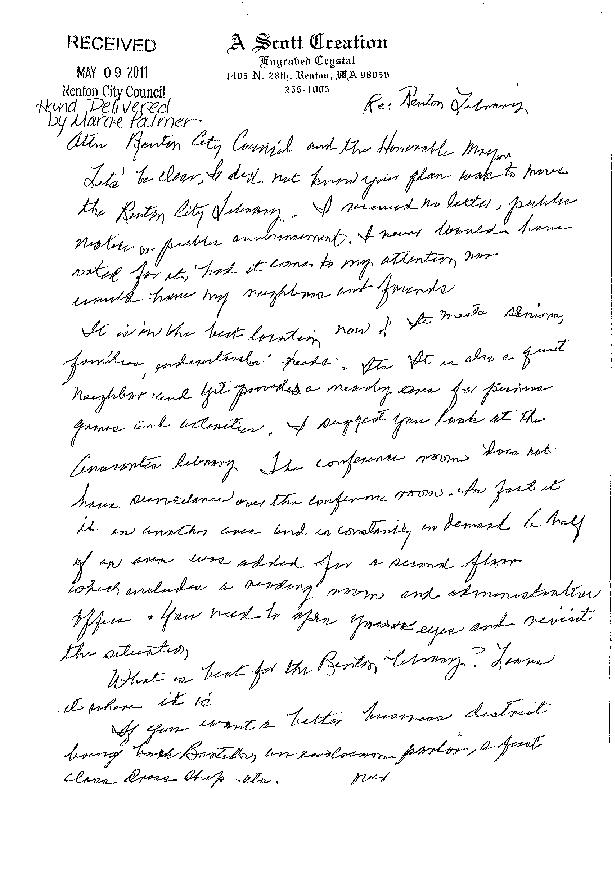 RECEIVED
MAY 09 2011
Renton City Council
Hand Delivered
by Marcie Palmer
A Scott Creation
Engraved Crystal
1405 N. 28th, Renton, WA 98056
Re: Renton Library
Attn Renton City Council and the Honorable Mayor
Let's be clear, I did not know your plan was to move
the Renton City Library. I received no letter, public
notice or public announcement. I never would have
voted for it, had it come to my attention, nor
would have my neighbors and friends
It is in the best location now! It meets seniors,
families, needs. It is also a quiet
neighbor and yet provides a nearby area for
games and activities. I suggest you look at the
Anacortes Library. The conference room does not
have surveillance over the conference room. In fact it
is in another area and is constantly in demand. 
of an area was added for a second floor
which includes a reading room and administrative
office. You need to open your eyes and revisit
the situation
What is best for the Renton Library? Leave
it where it is
If you want a better business district
bring back an icecream parlor, a first
class Dress Shop etc.